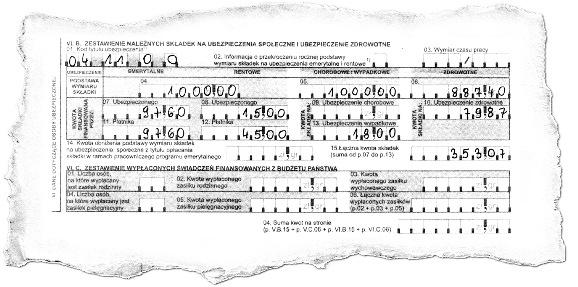 VI. B. ZESTAWIENIE NALEŻNYCH SKŁADEK NA UBEZPIECZENIA SPOŁECZNE I UBEZPIECZENIE ZDROWOTNE
01. Kod tytułu ubezpieczenia
02. Informacja o przekroczeniu rocznej podstawy wymiaru składek na ubezpieczenia emerytalne i rentowe
03. Wymiar czasu pracy
04 11 0 0
UBEZPIECZENIE EMERYTALNE RENTOWE CHOROBOWE I WYPADKOWE ZDROWOTNE
PODSTAWA WYMIARU SKŁADKI
04. 1000,00
05. 1000,00
06. 887,40
07. Ubezpieczonego 97,60
08. Ubezpieczonego 45,00
09. Ubezpieczenie chorobowe
10. Ubezpieczenie zdrowotne 79,87
11. Płatnika 97,60
12. Płatnika 45,00
13. Ubezpieczenie wypadkowe 18,00
14. Kwota obniżenia podstawy wymiaru składek
na ubezpieczenie społeczne z tytułu opłacania
składki w ramach pracowniczego programu emerytalnego
15. Łączna kwota składek
(suma od p.07 do p.13)
353,07
VI. C. ZESTAWIENIE WYPŁACONYCH ŚWIADCZEŃ FINANSOWANYCH Z BUDŻETU PAŃSTWA
01. Liczba osób,
na które wypłacany
jest zasiłek rodzinny
02. Kwota wypłaconego
zasiłku rodzinnego
03. Kwota
wypłaconego zasiłku
wychowawczego
04. Liczba osób,
na które wypłacany jest
zasiłek pielęgnacyjny
05. Kwota wypłaconego
zasiłku pielęgnacyjnego
06. Łączna kwota
wypłaconych zasiłków
(p.02 + p.03 + p.05)
04. Suma kwot na stronie
(p. V.B.15 + p. V.C.06 + p. VI.B.15 + p. VI.C.06)